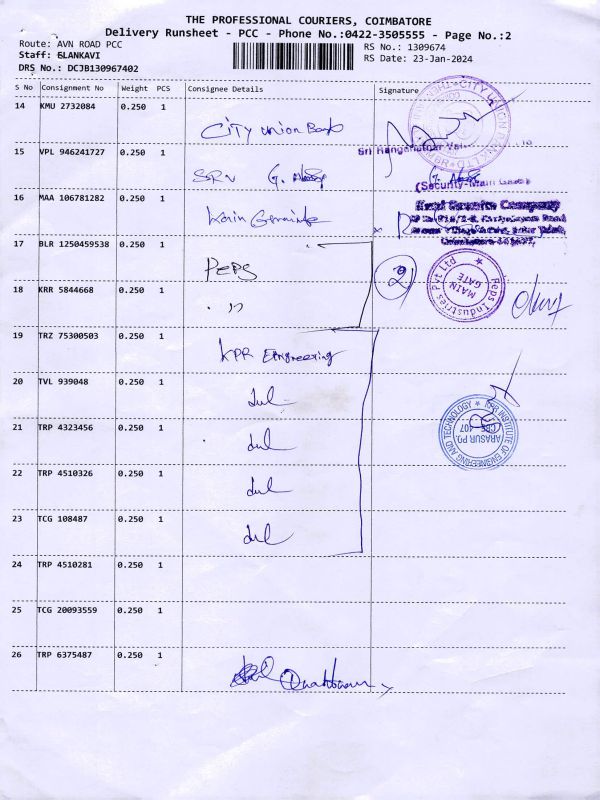 THE PROFESSIONAL COURIERS, COIMBATORE
Delivery Runsheet - PCC - Phone No.:0422-3505555 - Page No.:2
Route: AVN ROAD PCC
RS No.: 1309674
Staff: ELANKAVI
RS Date: 23-Jan-2024
DRS No.: DCJB130967402
S No Consignment No Weight PCS Consignee Details Signature
14 KMU 2732084 0.250 1
City Union Bank
15 VPL 946241727 0.250 1
Sri Ranganathar
SRV G.
(Security-Main Gate)
16 MAA 106781282 0.250 1
17 BLR 1250459538 0.250 1
PEPS
Peps Industries Pvt Ltd
MAIN GATE
2
18 KRR 5844668 0.250 1
"
19 TRZ 75300503 0.250 1
KPR Engineering
20 TVL 939048 0.250 1
KPR INSTITUTE OF ENGINEERING AND TECHNOLOGY
ARASUR PO,
CBE 407
21 TRP 4323456 0.250 1
22 TRP 4510326 0.250 1
23 TCG 108487 0.250 1
24 TRP 4510281 0.250 1
25 TCG 20093559 0.250 1
26 TRP 6375487 0.250 1